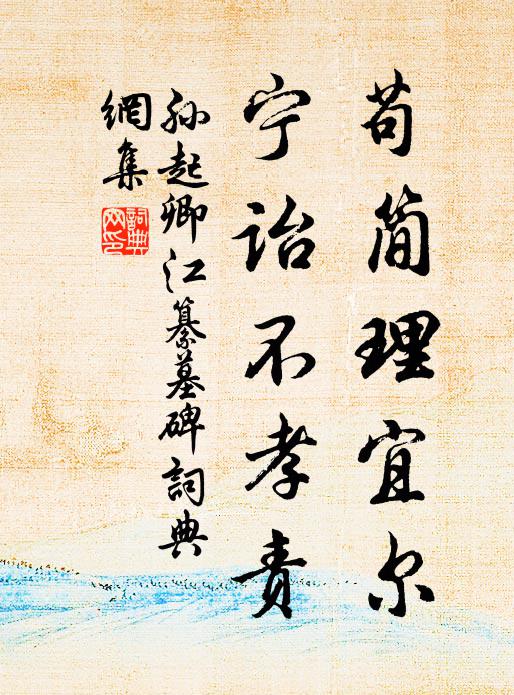 苟简理宜尔
宁诒不孝责
孙起卿江纂墓碑詞典
網集
詞典
网印